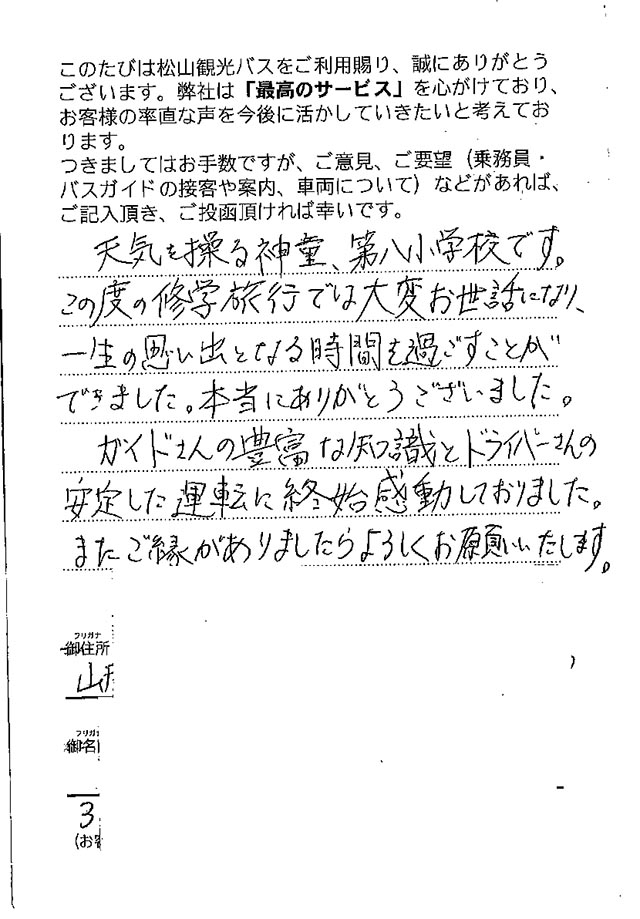 このたびは松山観光バスをご利用賜り、誠にありがとう
ございます。弊社は「最高のサービス」を心がけており、
お客様の率直な声を今後に活かしていきたいと考えてお
ります。
つきましてはお手数ですが、ご意見、ご要望（乗務員・
バスガイドの接客や案内、車両について）などがあれば、
ご記入頂き、ご投函頂ければ幸いです。
天気を操る神童、第八小学校です。
この度の修学旅行では大変お世話になり、
一生の思い出となる時間を過ごすことが
できました。本当にありがとうございました。
ガイドさんの豊富な知識とドライバーさんの
安定した運転に終始感動しておりました。
またご縁がありましたらよろしくお願いいたします。
フリガナ
御住所
山形
フリガナ
御名
3
(お客